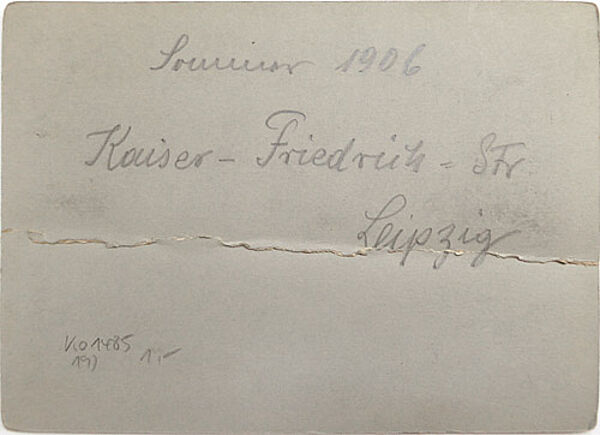 Sommer 1906
Kaiser-Friedrich=Str
Leipzig
1,-